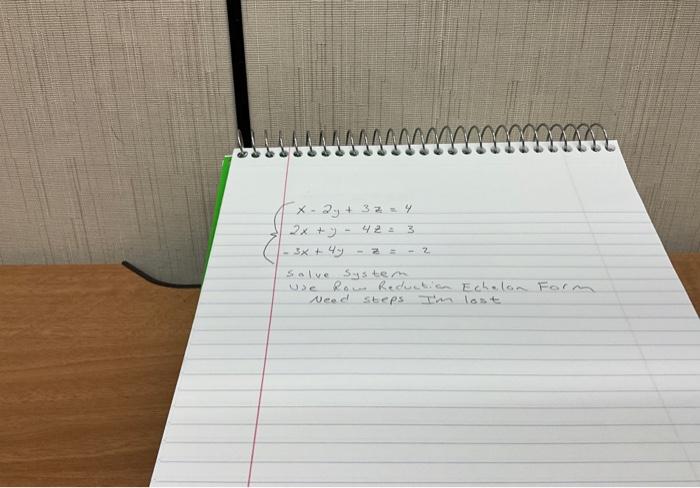 x - 2y + 3z = 4
2x + y - 4z = 3
-3x + 4y - z = -2
Solve System
Use Row Reduction Echelon Form
Need steps I'm lost